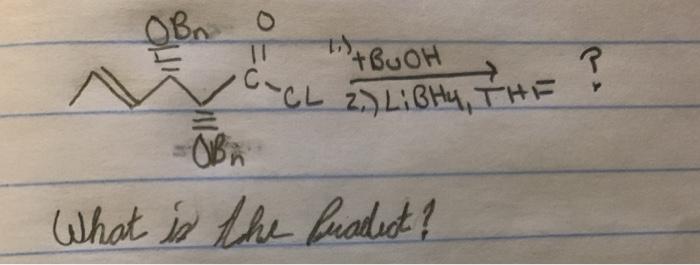 OBn O
1.) +BuOH
C CL 2.) LiBH4, THF ?
OBn
What is the Product?